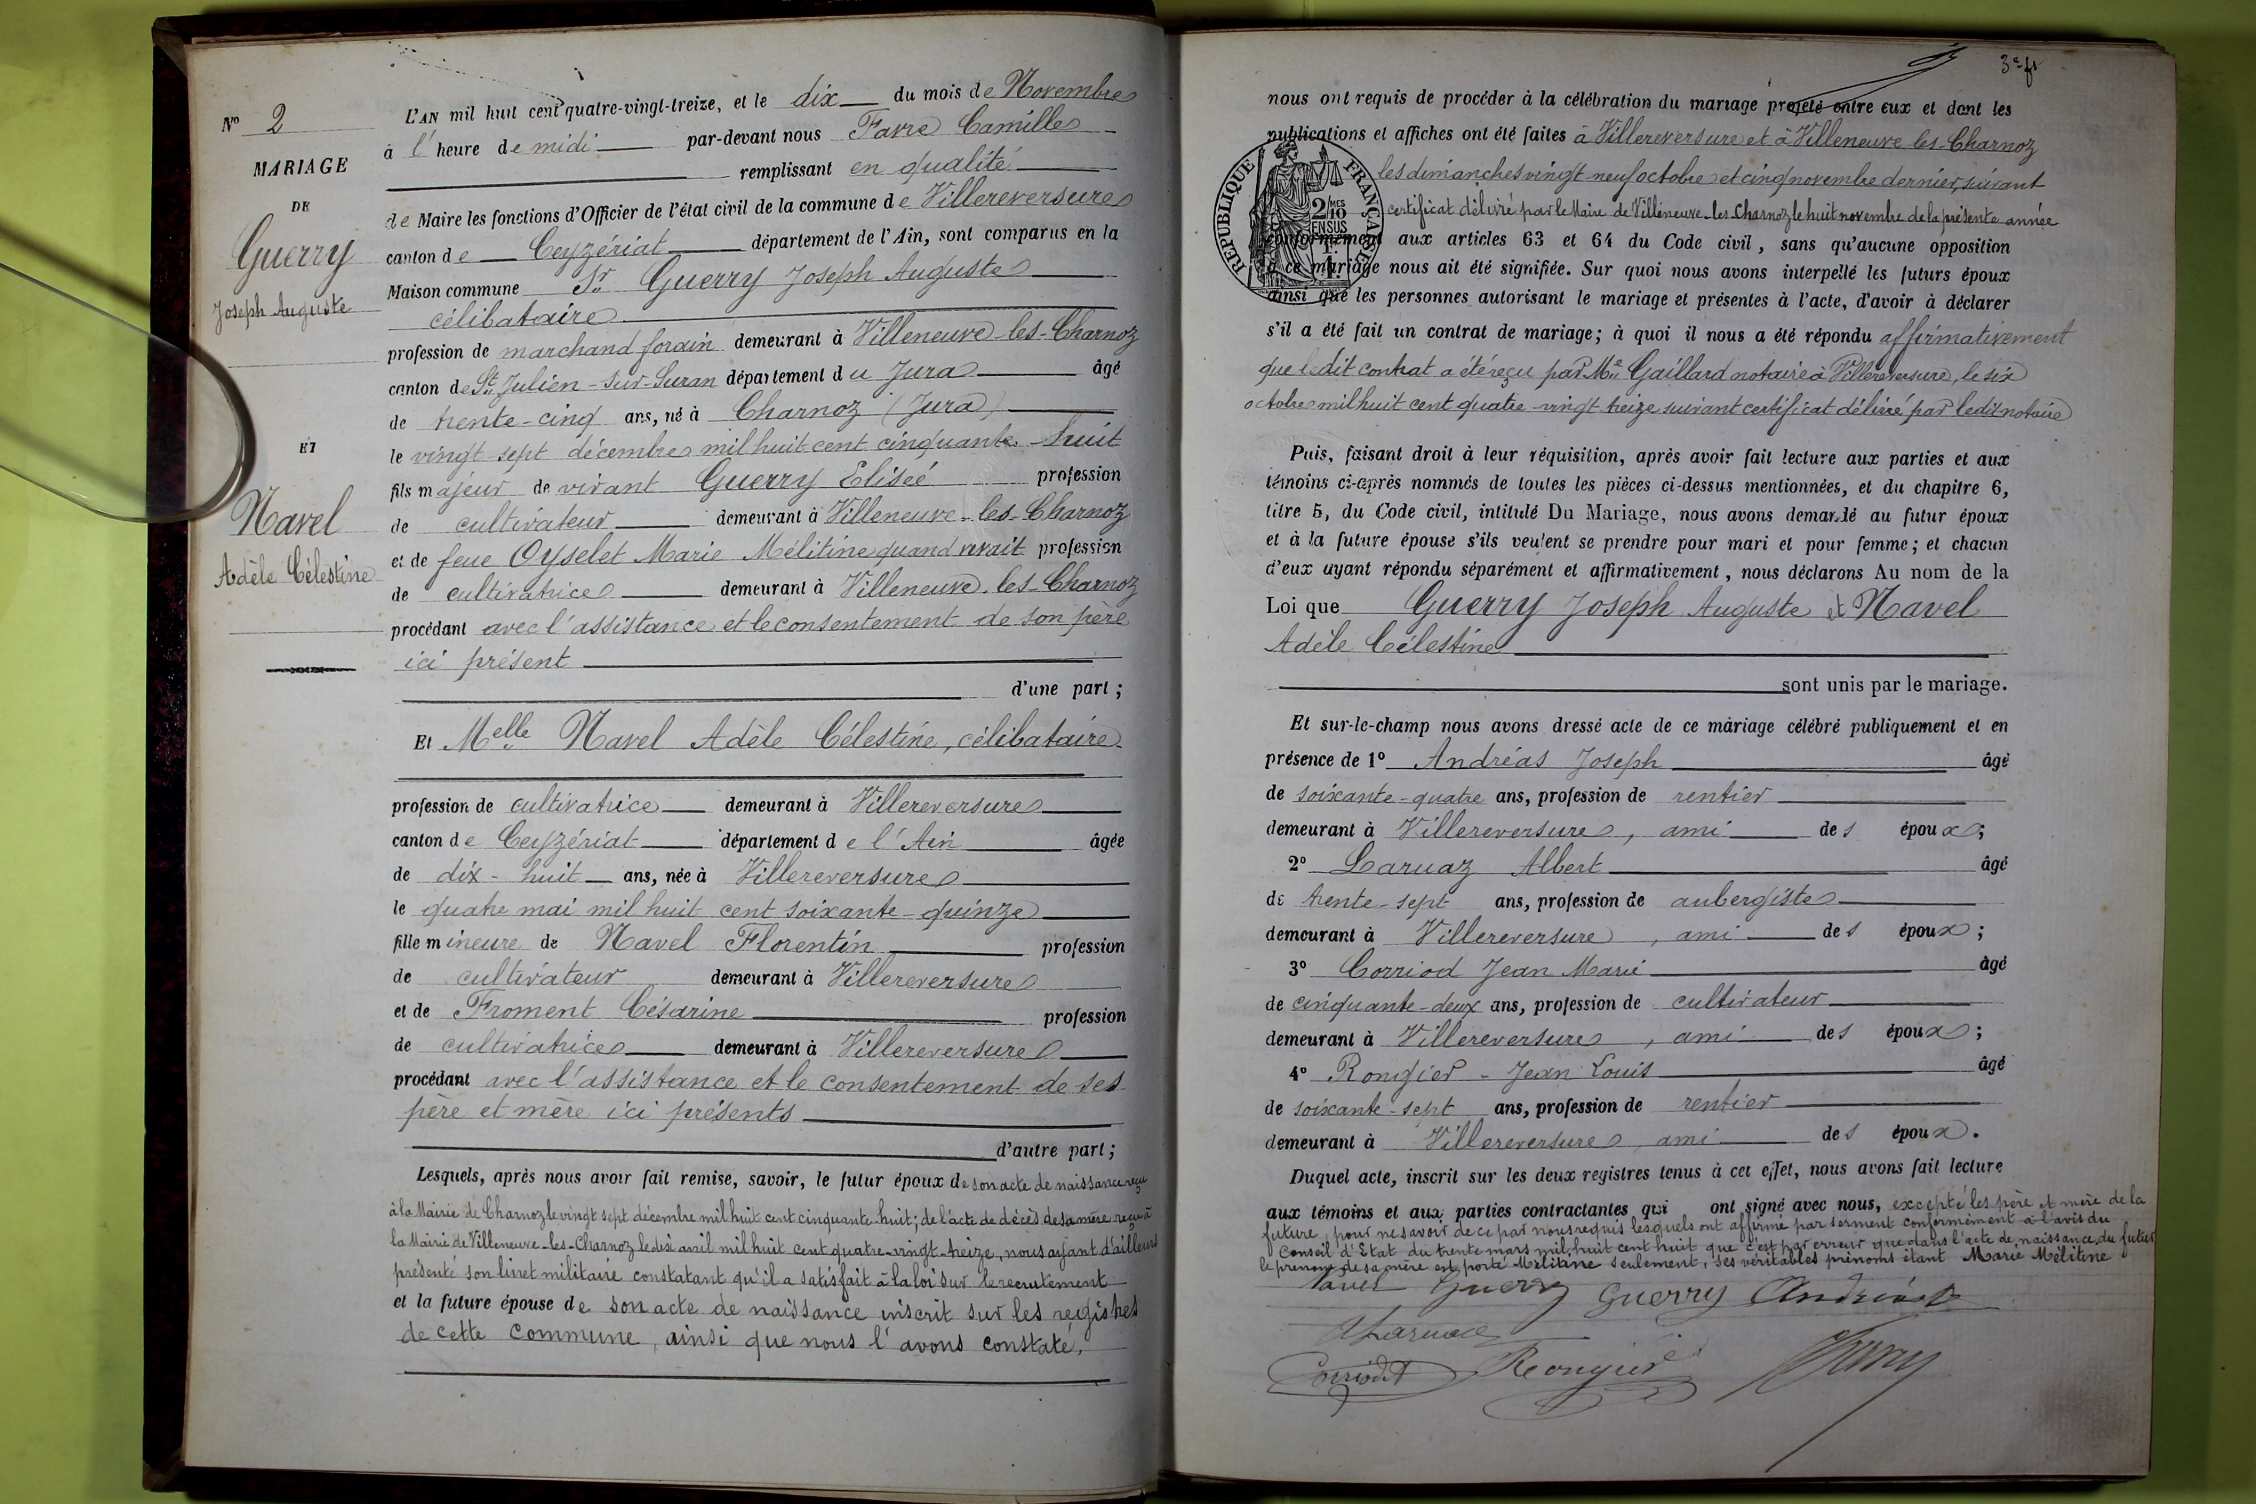 N° 2
MARIAGE
DE
Guerry
Joseph Auguste
ET
Navel
Adèle Célestine
L'AN mil huit cent quatre-vingt-treize, et le dix du mois de Novembre
à l'heure de midi par-devant nous Favre Camille
remplissant en qualité
de Maire les fonctions d'Officier de l'état civil de la commune de Villereversure
canton de Ceyzériat département de l'Ain, sont comparus en la
Maison commune Sr Guerry Joseph Auguste
célibataire
profession de marchand forain demeurant à Villeneuve-les-Charnoz
canton de St Julien-sur-Suran département du Jura âgé
de trente-cinq ans, né à Charnoz (Jura)
le vingt-sept décembre mil huit cent cinquante-huit
fils majeur de vivant Guerry Elisée profession
de cultivateur demeurant à Villeneuve-les-Charnoz
et de feue Oyselet Marie Mélitine quand vivait profession
de cultivatrice demeurant à Villeneuve-les-Charnoz
procédant avec l'assistance et le consentement de son père
ici présent
d'une part ;
Et Melle Navel Adèle Célestine, célibataire
profession de cultivatrice demeurant à Villereversure
canton de Ceyzériat département de l'Ain âgée
de dix-huit ans, née à Villereversure
le quatre mai mil huit cent soixante-quinze
fille mineure de Navel Florentin profession
de cultivateur demeurant à Villereversure
et de Froment Césarine profession
de cultivatrice demeurant à Villereversure
procédant avec l'assistance et le consentement de ses
père et mère ici présents
d'autre part ;
Lesquels, après nous avoir fait remise, savoir, le futur époux de son acte de naissance reçu
à la Mairie de Charnoz le vingt sept décembre mil huit cent cinquante-huit ; de l'acte de décès de sa mère reçu à
la Mairie de Villeneuve-les-Charnoz le dix avril mil huit cent quatre-vingt-treize, nous ayant d'ailleurs
présenté son livret militaire constatant qu'il a satisfait à la loi sur le recrutement
et la future épouse de son acte de naissance inscrit sur les registres
de cette commune, ainsi que nous l'avons constaté,
3e fr
nous ont requis de procéder à la célébration du mariage projeté entre eux et dont les
publications et affiches ont été faites à Villereversure et à Villeneuve-les-Charnoz
les dimanches vingt-neuf octobre et cinq novembre dernier, suivant
certificat délivré par le Maire de Villeneuve-les-Charnoz le huit novembre de la présente année
conformément aux articles 63 et 64 du Code civil, sans qu'aucune opposition
à ce mariage nous ait été signifiée. Sur quoi nous avons interpellé les futurs époux
ainsi que les personnes autorisant le mariage et présentes à l'acte, d'avoir à déclarer
s'il a été fait un contrat de mariage ; à quoi il nous a été répondu affirmativement
que ledit contrat a été reçu par Me Gaillard notaire à Villereversure, le six
octobre mil huit cent quatre-vingt treize suivant certificat délivré par ledit notaire
RÉPUBLIQUE FRANÇAISE
2 MES
10
EN SUS
1 F.
Puis, faisant droit à leur réquisition, après avoir fait lecture aux parties et aux
témoins ci-après nommés de toutes les pièces ci-dessus mentionnées, et du chapitre 6,
titre 5, du Code civil, intitulé Du Mariage, nous avons demandé au futur époux
et à la future épouse s'ils veulent se prendre pour mari et pour femme ; et chacun
d'eux ayant répondu séparément et affirmativement, nous déclarons Au nom de la
Loi que Guerry Joseph Auguste et Navel
Adèle Célestine
sont unis par le mariage.
Et sur-le-champ nous avons dressé acte de ce mariage célébré publiquement et en
présence de 1° Andréas Joseph âgé
de soixante-quatre ans, profession de rentier
demeurant à Villereversure, ami des époux ;
2° Laruaz Albert âgé
de trente-sept ans, profession de aubergiste
demeurant à Villereversure, ami des époux ;
3° Corriod Jean Marie âgé
de cinquante-deux ans, profession de cultivateur
demeurant à Villereversure, ami des époux ;
4° Rongier - Jean Louis âgé
de soixante-sept ans, profession de rentier
demeurant à Villereversure, ami des époux.
Duquel acte, inscrit sur les deux registres tenus à cet effet, nous avons fait lecture
aux témoins et aux parties contractantes qui ont signé avec nous, excepté les père et mère de la
future, pour ne savoir de ce par nous requis lesquels ont affirmé par serment conformément à l'avis du
Conseil d'Etat du trente mars mil huit cent huit que c'est par erreur que dans l'acte de naissance du futur
le prénom de sa mère est porté Mélitine seulement, ses véritables prénoms étant Marie Mélitine
Navel Guerry Guerry Andréas
Laruaz
Corriod Rongier Favre